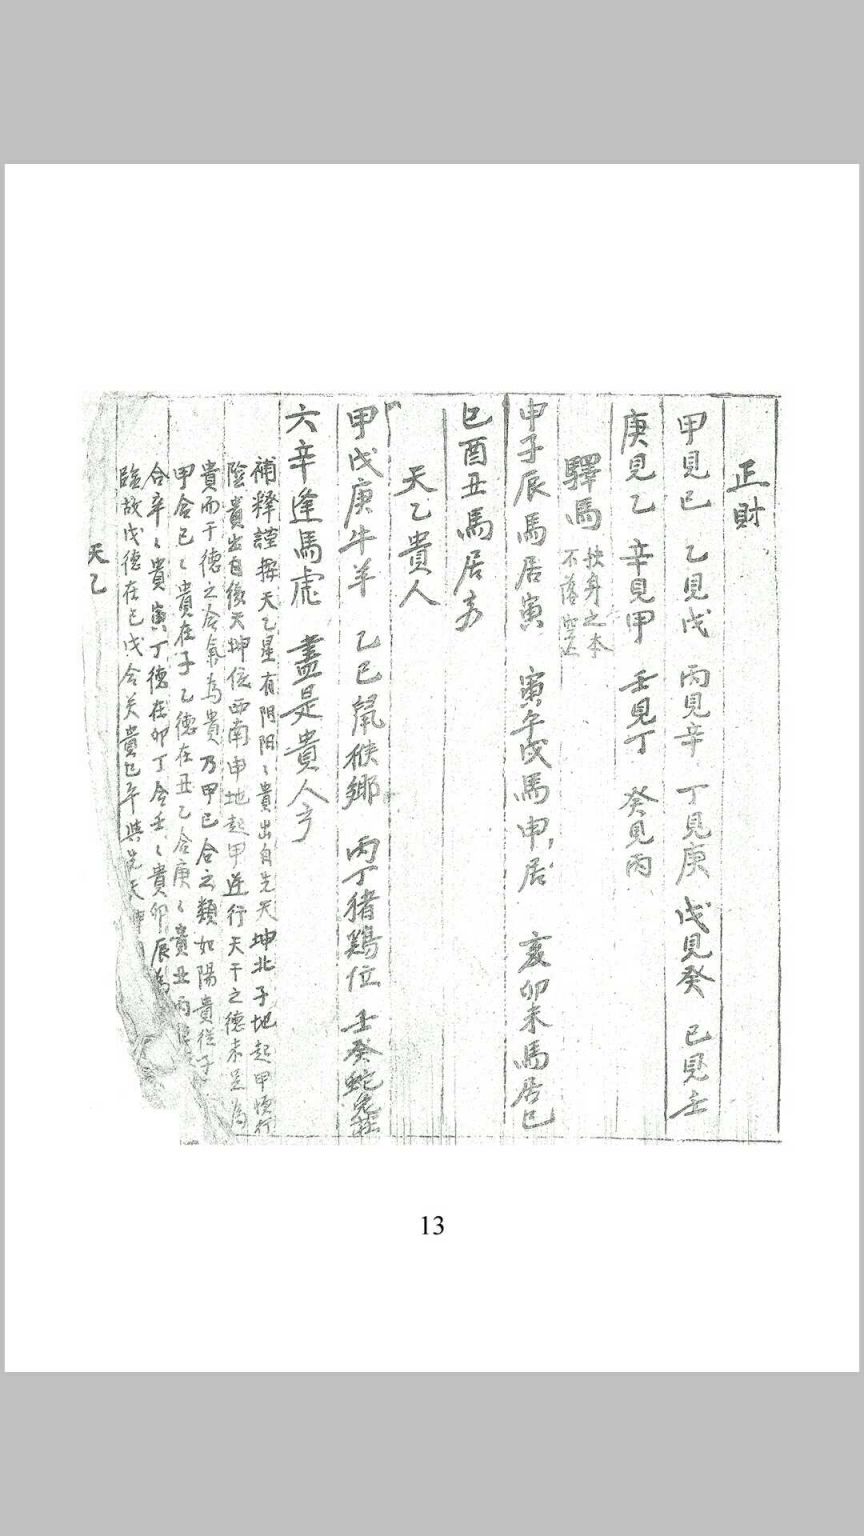 正財
甲見己 乙見戊 丙見辛 丁見庚 戊見癸 己見壬
庚見乙 辛見甲 壬見丁 癸見丙
驛馬 扶身之本
不落空亡
申子辰馬居寅 寅午戌馬申居 亥卯未馬居巳
巳酉丑馬居亥
天乙貴人
甲戊庚牛羊 乙己鼠猴鄉 丙丁猪鷄位 壬癸蛇兔莊
六辛逢馬虎 盡是貴人方
補釋謹按天乙星有阴阳〻貴出自先天坤北子地起甲順行
陰貴出自後天坤位西南申地起甲逆行天干之德未足為
貴而干德之合氣為貴乃甲己合之類如陽貴從子
甲合己〻貴在子乙德在丑乙合庚〻貴丑丙
合辛〻貴寅丁德在卯丁合壬〻貴卯辰為
臨故戊德在巳戊合癸貴巳午與先天
天乙
13